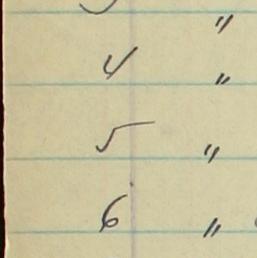 "
4 "
5 "
6 "